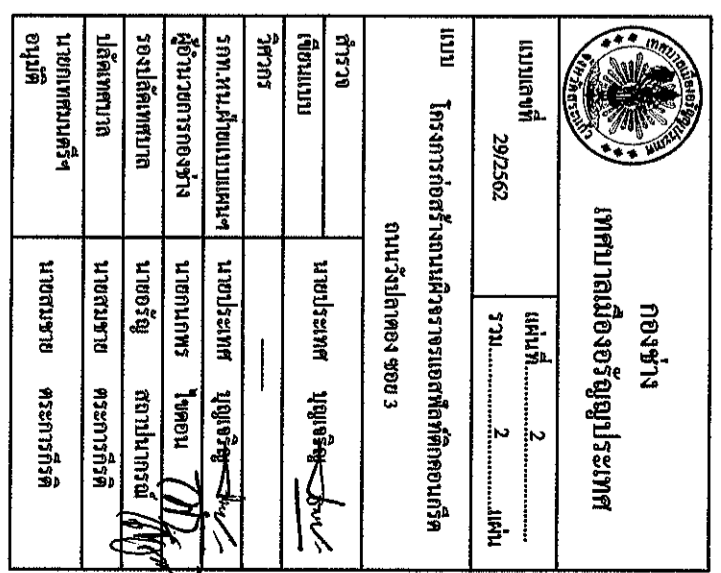 เทศบาลเมืองอรัญญประเทศ
จังหวัดสระแก้ว
กองช่าง
เทศบาลเมืองอรัญญประเทศ
แบบเลขที่
29/2562
แผ่นที่ 2
รวม 2 แผ่น
แบบ โครงการก่อสร้างถนนผิวจราจรแอสฟัลท์ติกคอนกรีต
ถนนวังปลาตอง ซอย 3
สำรวจ
เขียนแบบ นายประเทศ บุญเจริญ
วิศวกร
รกท.หน.ฝ่ายแบบแผนฯ นายประเทศ บุญเจริญ
ผู้อำนวยการกองช่าง นายกนกพร ไขดอน
รองปลัดเทศบาล นายอรัญ สถาปนากรณ์
ปลัดเทศบาล นายสมชาย ตระการกีรติ
นายกเทศมนตรีฯ นายสมชาย ตระการกีรติ
อนุมัติ